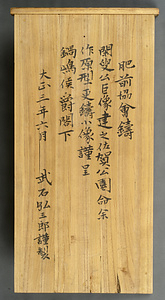 肥前協會鑄
閑叟公巨像建之佐賀公園命余
作原型更鑄小像謹呈
鍋島侯爵閣下
大正三年六月
武石弘三郎謹製